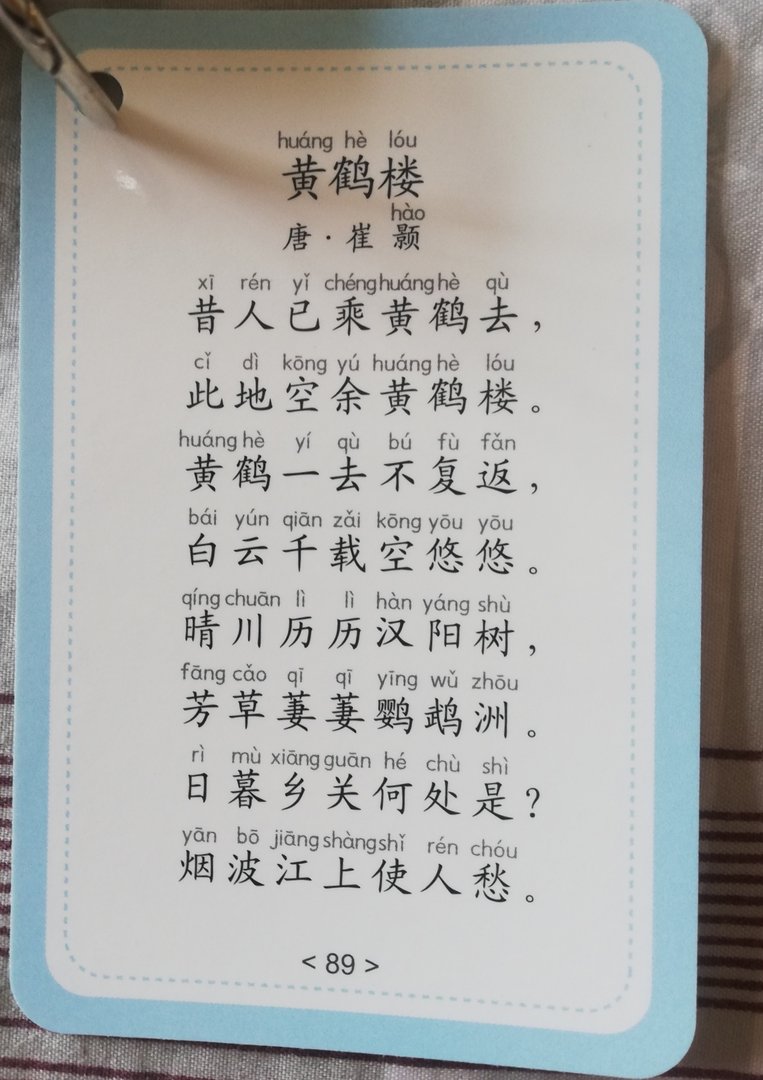 huáng hè lóu
黄鹤楼
hào
唐·崔颢
xī rén yǐ chéng huáng hè qù
昔人已乘黄鹤去，
cǐ dì kōng yú huáng hè lóu
此地空余黄鹤楼。
huáng hè yí qù bú fù fǎn
黄鹤一去不复返，
bái yún qiān zǎi kōng yōu yōu
白云千载空悠悠。
qíng chuān lì lì hàn yáng shù
晴川历历汉阳树，
fāng cǎo qī qī yīng wǔ zhōu
芳草萋萋鹦鹉洲。
rì mù xiāng guān hé chù shì
日暮乡关何处是？
yān bō jiāng shàng shǐ rén chóu
烟波江上使人愁。
< 89 >